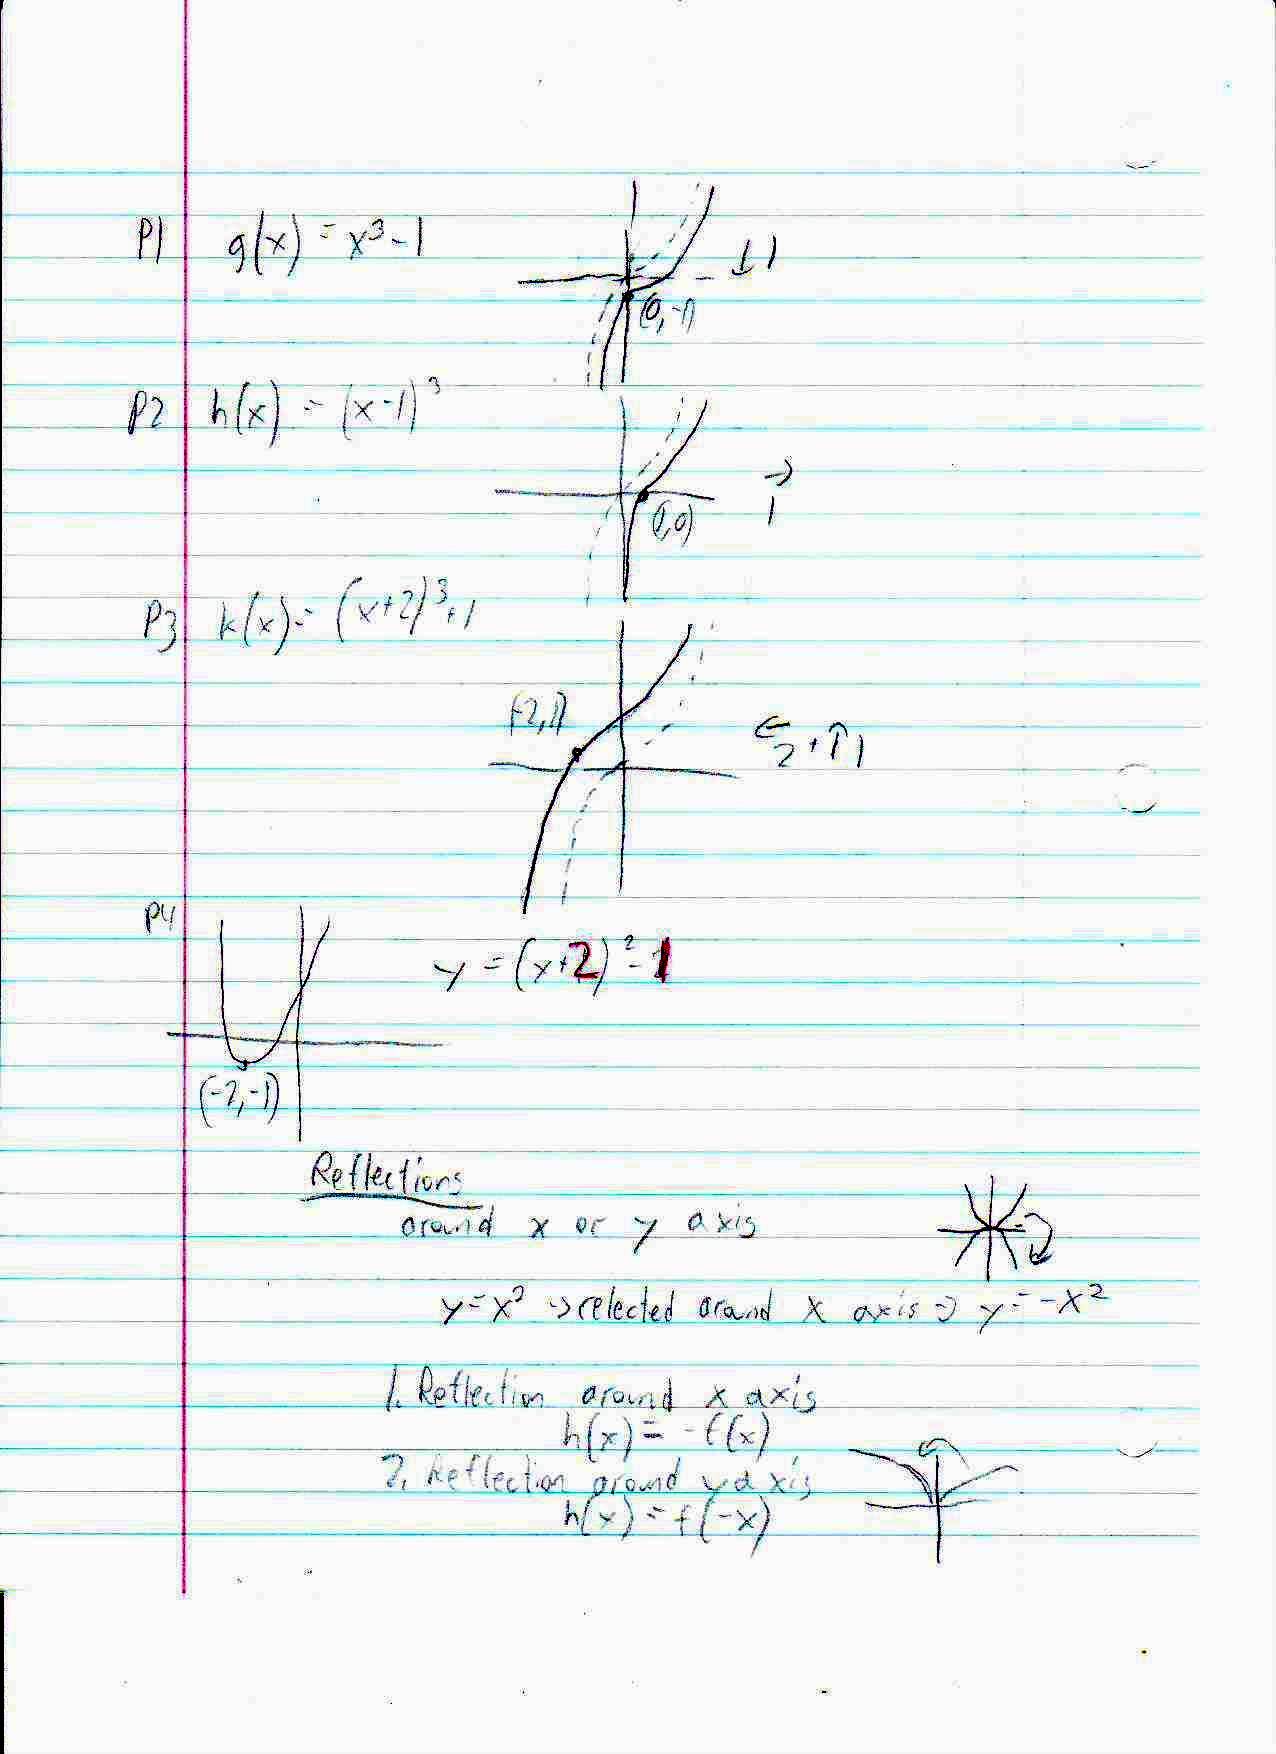 P1 g(x) = x³-1 ↓1
(0,-1)
P2 h(x) = (x-1)³ → 1
(1,0)
P3 k(x) = (x+2)³+1
(-2,1) ←2 + ↑1
P4
y = (x+2)²-1
(-2,-1)
Reflections
around x or y axis
y=x² → relected around x axis ⇒ y=-x²
1. Reflection around x axis
h(x) = -f(x)
2. Reflection around y axis
h(x) = f(-x)